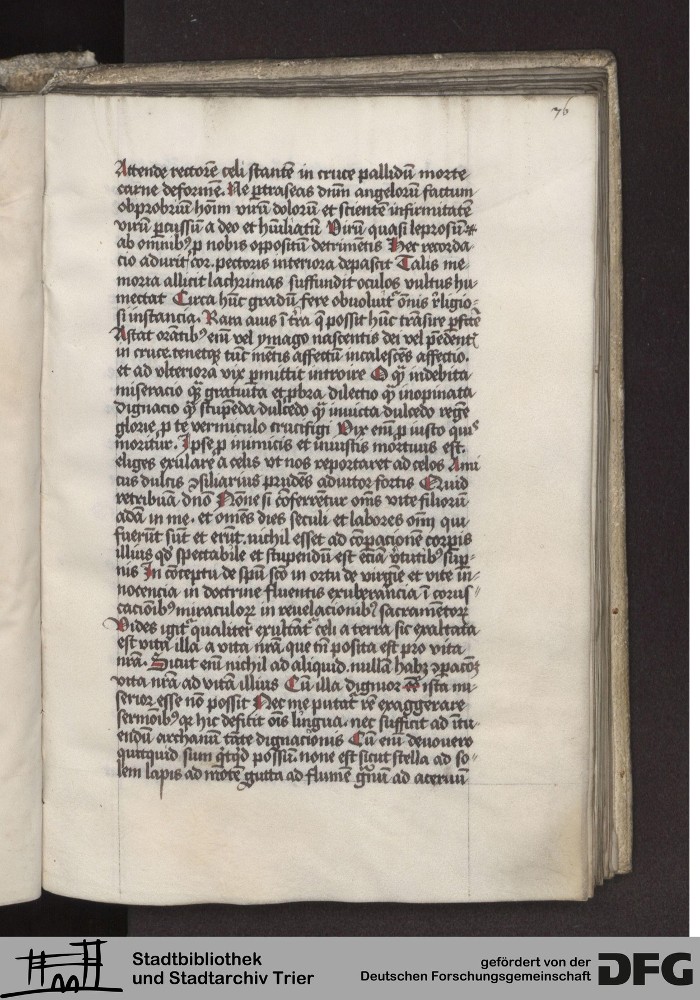 76
Attende rectorē celi stantē in cruce pallidū morte
carne deformē. Ne ꝑtraseas dn̄m angelorū factum
obprobriū hoīm virū dolorū et scientē infirmitatē
virū ꝑcussū a deo et hūiliatū Virū quasi leprosū
ab omnibꝰ ꝑ nobis oppositū detrimētis Hec recorda
cio adurit cor. pectoris interiora depascit Talis me
moria allicit lachrimas suffundit oculos vultus hu
mectat Circa hūc gradū fere obuoluit᷑ om̄is r̄ligio
si instancia. Rara auis ī t̄ra q̄ possit hūc trāsire ꝑfcē
Astat orātibꝰ eiū vel ymago nascentis dei vel pēdent᷑
in cruce. tenetqꝫ tūc mētis affectū incalescēs affectio.
et ad vlteriora vix ꝑmittit introire O qꝫ indebita
miseracio qꝫ gratuita et ꝓbra dilectio qꝫ inopinata
dignacio qꝫ stupēda dulcedo qꝫ inuicta dulcedo regē
glorie ꝑ te vermiculo crucifigi Vix em̄ ꝑ iusto quis
moritur. Ipse ꝑ inimicis et iniustis mortuus est.
eliges exulare a celis vt nos reportaret ad celos Ami
cus dulcis ꝯsiliarius prudēs adiutor fortis Quid
retribuā dn̄o None si cōferretur om̄s vite filiorū
adā in me. et omēs dies seculi et labores om̄i qui
fuerūt sūt et erūt. nichil esset ad cōpacionē corpis
illius qd̄ spectabile et stupendū est eciā v̄tutibꝰ suꝑ
nis In cōceptu de spū scō in ortu de virgīe et vite in
nocencia in doctrine fluentis exuberancia ī corus
cacionibꝰ miraculoꝝ in reuelacionibꝰ sacramētoꝝ
Vides igit᷑ qualiter exultāt᷑ celi a terra sic exaltata
est vita illa a vita nr̄a. que tn̄ posita est pro vita
nr̄a. Sicut em̄ nichil ad aliquid. nullā habꝫ ꝓpacōꝫ
vita nr̄a ad vitā illius Cū illa dignior esse ista mi
serior esse nō possit Nec me putat᷑ rē exaggerare
sermōibꝰ qꝫ hic defitit om̄s lingua. nec sufficit ad ītu
endū archanū tāte dignacionis Cū em̄ deuouero
quitquid sum qͥtqͥd possū. none est sicut stella ad so
lem lapis ad mōtē gutta ad flumē gͣnū ad aceruū
Stadtbibliothek
und Stadtarchiv Trier
gefördert von der
Deutschen Forschungsgemeinschaft
DFG